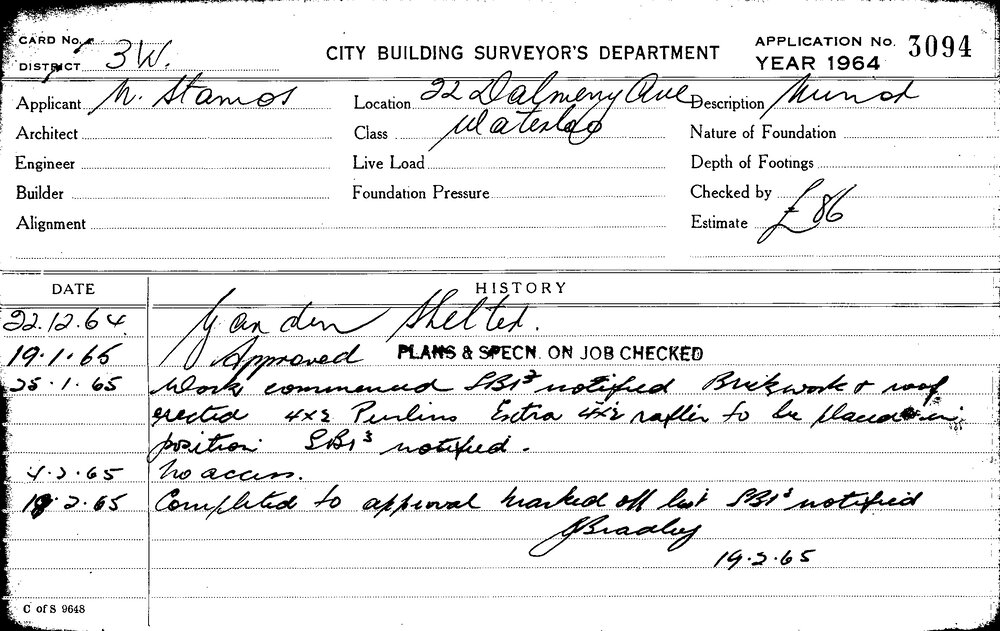 CARD No.
DISTRICT 3W.
CITY BUILDING SURVEYOR'S DEPARTMENT
APPLICATION No. 3094
YEAR 1964
Applicant N. Stamos
Location 22 Dalmeny Ave
Waterloo
Description Minor
Architect
Class
Nature of Foundation
Engineer
Live Load
Depth of Footings
Builder
Foundation Pressure
Checked by
Alignment
Estimate £86
DATE
HISTORY
22.12.64 Garden Shelter.
19.1.65 Approved PLANS & SPECN. ON JOB CHECKED
25.1.65 Work commenced notified Brickwork & roof
erected 4x2 Purlins Extra 4x2 rafter to be placed in
position notified.
4.2.65 No access.
2.65 Completed to approval marked off list notified
JBradley
19.2.65
C of S 9648